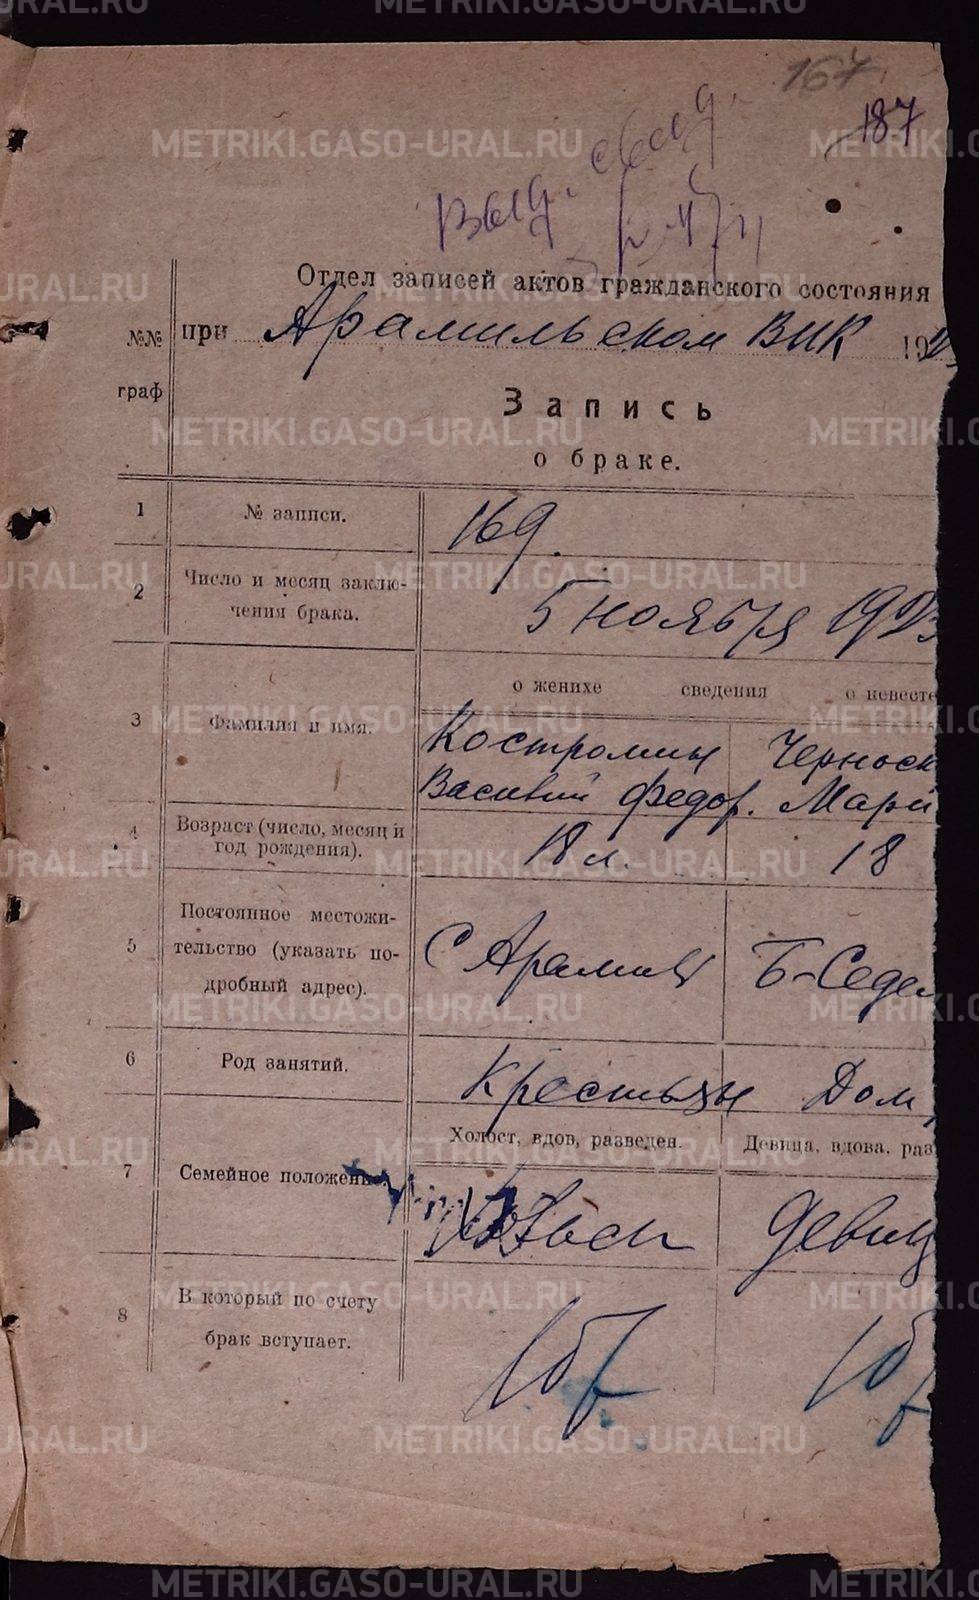 167
187
Выд. свид.
Отдел записей актов гражданского состояния
№№ граф
при Арамильском ВИК 192
Запись
о браке.
1 № записи. 169.
2 Число и месяц заклю-
чения брака.
5 ноября 1923
о женихе сведения о невесте
3 Фамилия и имя.
Костромин Черноск
Василий Федор. Мари
4 Возраст (число, месяц и
год рождения).
18 л. 18
5 Постоянное местожи-
тельство (указать по-
дробный адрес).
С Арамиль Б-Седел
6 Род занятий.
Крестьян Дом
Холост, вдов, разведен. Девица, вдова, раз
7 Семейное положение.
Холост Девиц
8 В который по счету
брак вступает.
1 бр 1 бр
METRIKI.GASO-URAL.RU